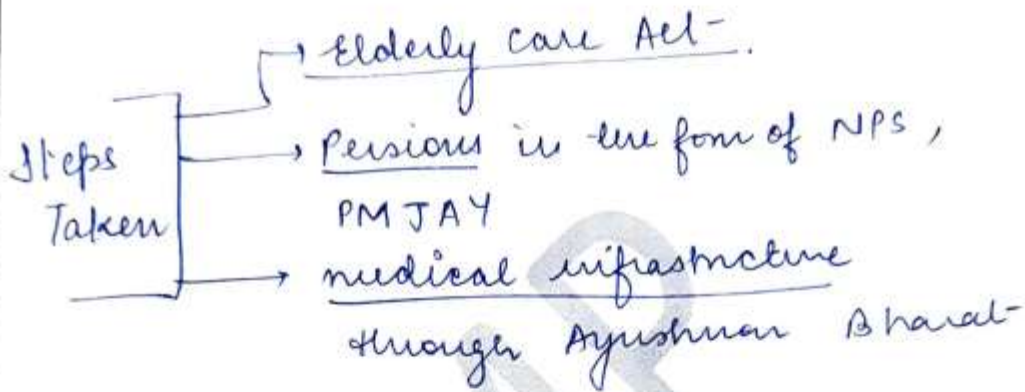 Steps
Taken
Elderly care Act.
Pensions in the form of NPS,
PMJAY
medical infrastructure
through Ayushman Bharat